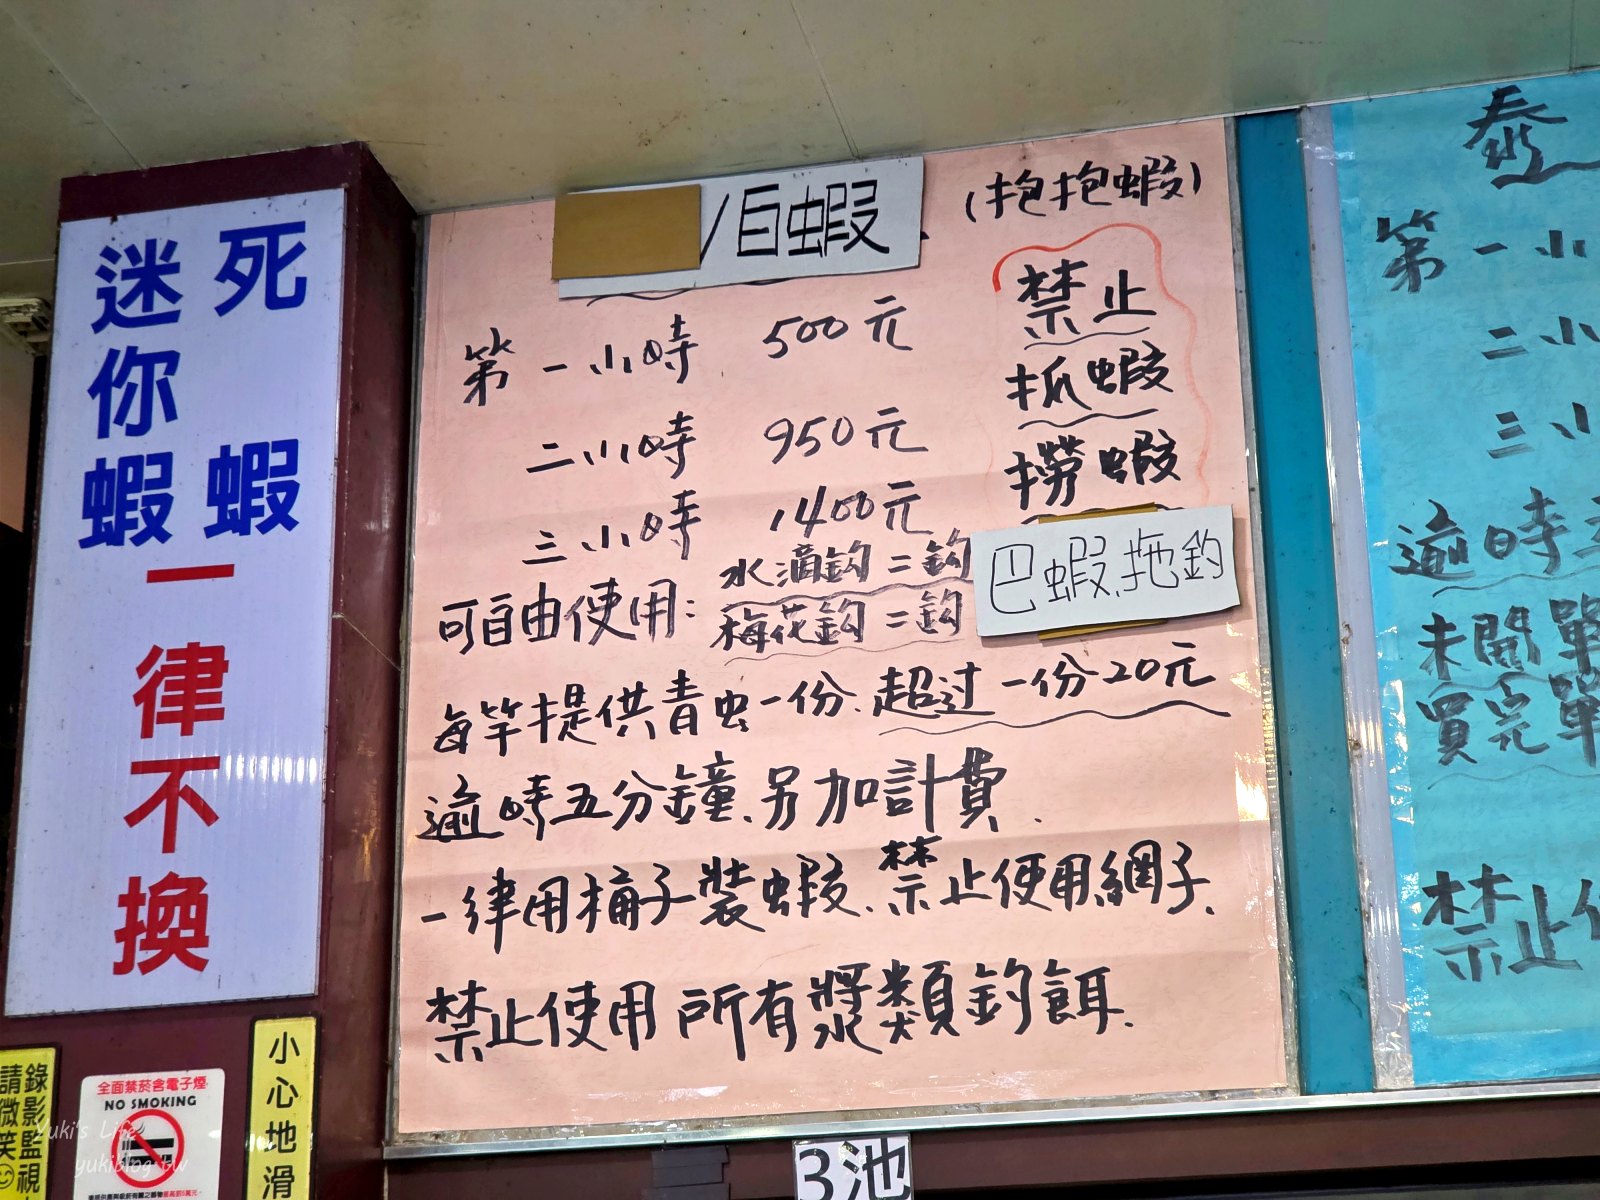 死蝦
迷你蝦
一律不換
/白蝦
(抱抱蝦)
第一小時 500元
二小時 950元
三小時 1400元
禁止
抓蝦
撈蝦
可自由使用:
水滴鈎二鈎
梅花鈎二鈎
巴蝦、拖釣
每竿提供青虫一份.超过一份20元
逾時五分鐘、另加計費.
一律用桶子裝蝦、禁止使用網子、
禁止使用所有漿類釣餌.
泰
第一小
二小
三小
逾時
未開單
買完單
禁止使
錄影監視
請微笑
全面禁菸含電子煙
NO SMOKING
小心地滑
3池
Yuki's Life
yukiblog.tw